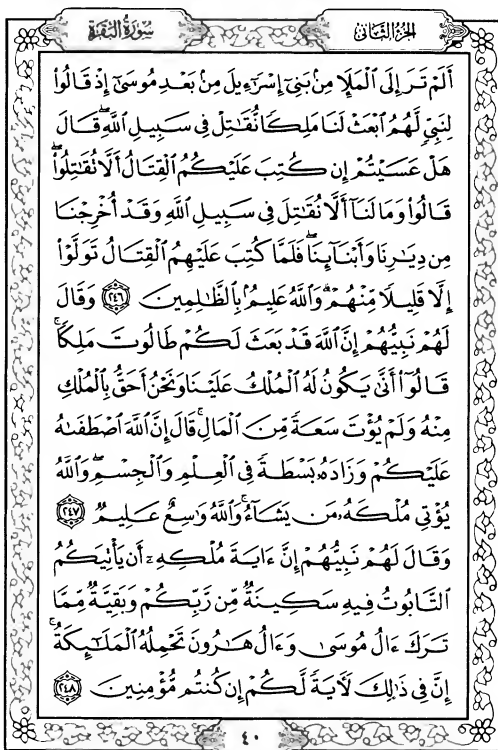 سُورَةُ البَقَرَةِ
الجُزْءُ الثَّانِي
أَلَمْ تَرَ إِلَى ٱلْمَلَإِ مِنۢ بَنِىٓ إِسْرَٰٓءِيلَ مِنۢ بَعْدِ مُوسَىٰٓ إِذْ قَالُوا۟
لِنَبِىٍّ لَّهُمُ ٱبْعَثْ لَنَا مَلِكًا نُّقَٰتِلْ فِى سَبِيلِ ٱللَّهِ ۖ قَالَ
هَلْ عَسَيْتُمْ إِن كُتِبَ عَلَيْكُمُ ٱلْقِتَالُ أَلَّا تُقَٰتِلُوا۟ ۖ
قَالُوا۟ وَمَا لَنَآ أَلَّا نُقَٰتِلَ فِى سَبِيلِ ٱللَّهِ وَقَدْ أُخْرِجْنَا
مِن دِيَٰرِنَا وَأَبْنَآئِنَا ۖ فَلَمَّا كُتِبَ عَلَيْهِمُ ٱلْقِتَالُ تَوَلَّوْا۟
إِلَّا قَلِيلًا مِّنْهُمْ ۗ وَٱللَّهُ عَلِيمٌۢ بِٱلظَّٰلِمِينَ ﴿٢٤٦﴾ وَقَالَ
لَهُمْ نَبِيُّهُمْ إِنَّ ٱللَّهَ قَدْ بَعَثَ لَكُمْ طَالُوتَ مَلِكًا ۚ
قَالُوٓا۟ أَنَّىٰ يَكُونُ لَهُ ٱلْمُلْكُ عَلَيْنَا وَنَحْنُ أَحَقُّ بِٱلْمُلْكِ
مِنْهُ وَلَمْ يُؤْتَ سَعَةً مِّنَ ٱلْمَالِ ۚ قَالَ إِنَّ ٱللَّهَ ٱصْطَفَىٰهُ
عَلَيْكُمْ وَزَادَهُۥ بَسْطَةً فِى ٱلْعِلْمِ وَٱلْجِسْمِ ۖ وَٱللَّهُ
يُؤْتِى مُلْكَهُۥ مَن يَشَآءُ ۚ وَٱللَّهُ وَٰسِعٌ عَلِيمٌ ﴿٢٤٧﴾
وَقَالَ لَهُمْ نَبِيُّهُمْ إِنَّ ءَايَةَ مُلْكِهِۦٓ أَن يَأْتِيَكُمُ
ٱلتَّابُوتُ فِيهِ سَكِينَةٌ مِّن رَّبِّكُمْ وَبَقِيَّةٌ مِّمَّا
تَرَكَ ءَالُ مُوسَىٰ وَءَالُ هَٰرُونَ تَحْمِلُهُ ٱلْمَلَٰٓئِكَةُ ۚ
إِنَّ فِى ذَٰلِكَ لَءَايَةً لَّكُمْ إِن كُنتُم مُّؤْمِنِينَ ﴿٢٤٨﴾
٤٠